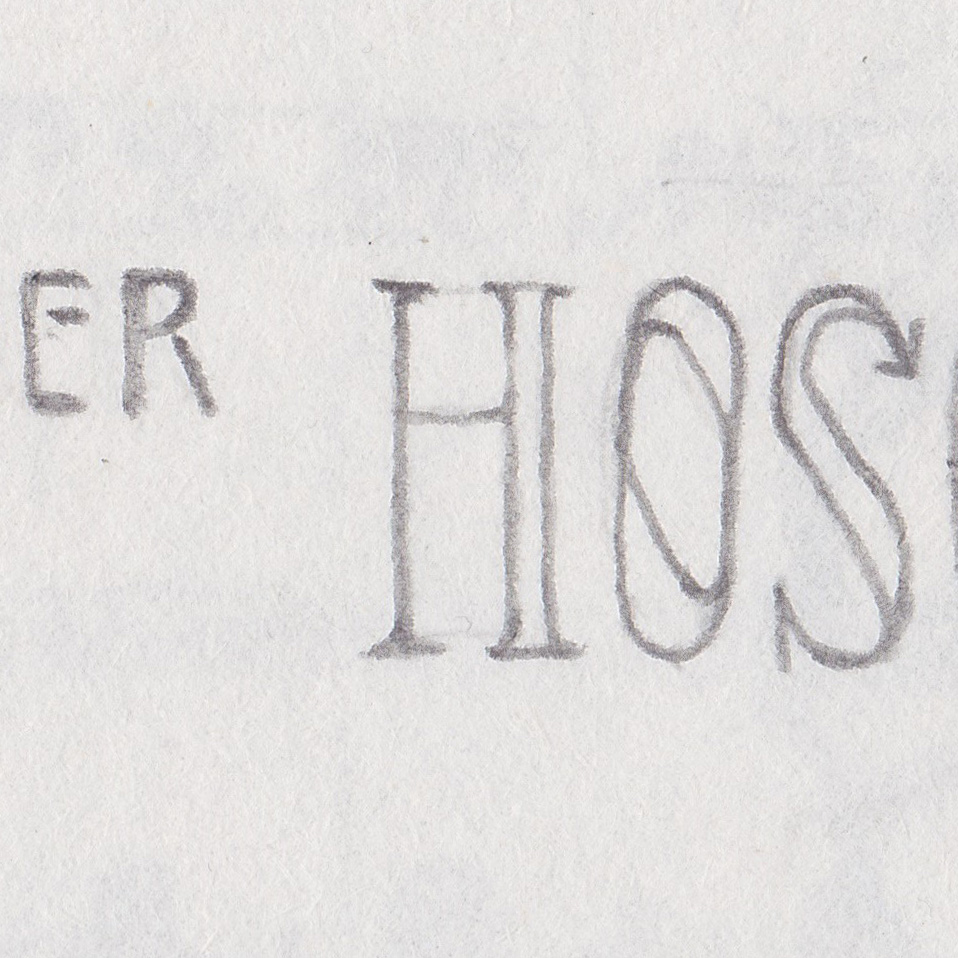 ER HOS